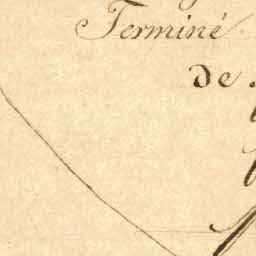 Terminé
De